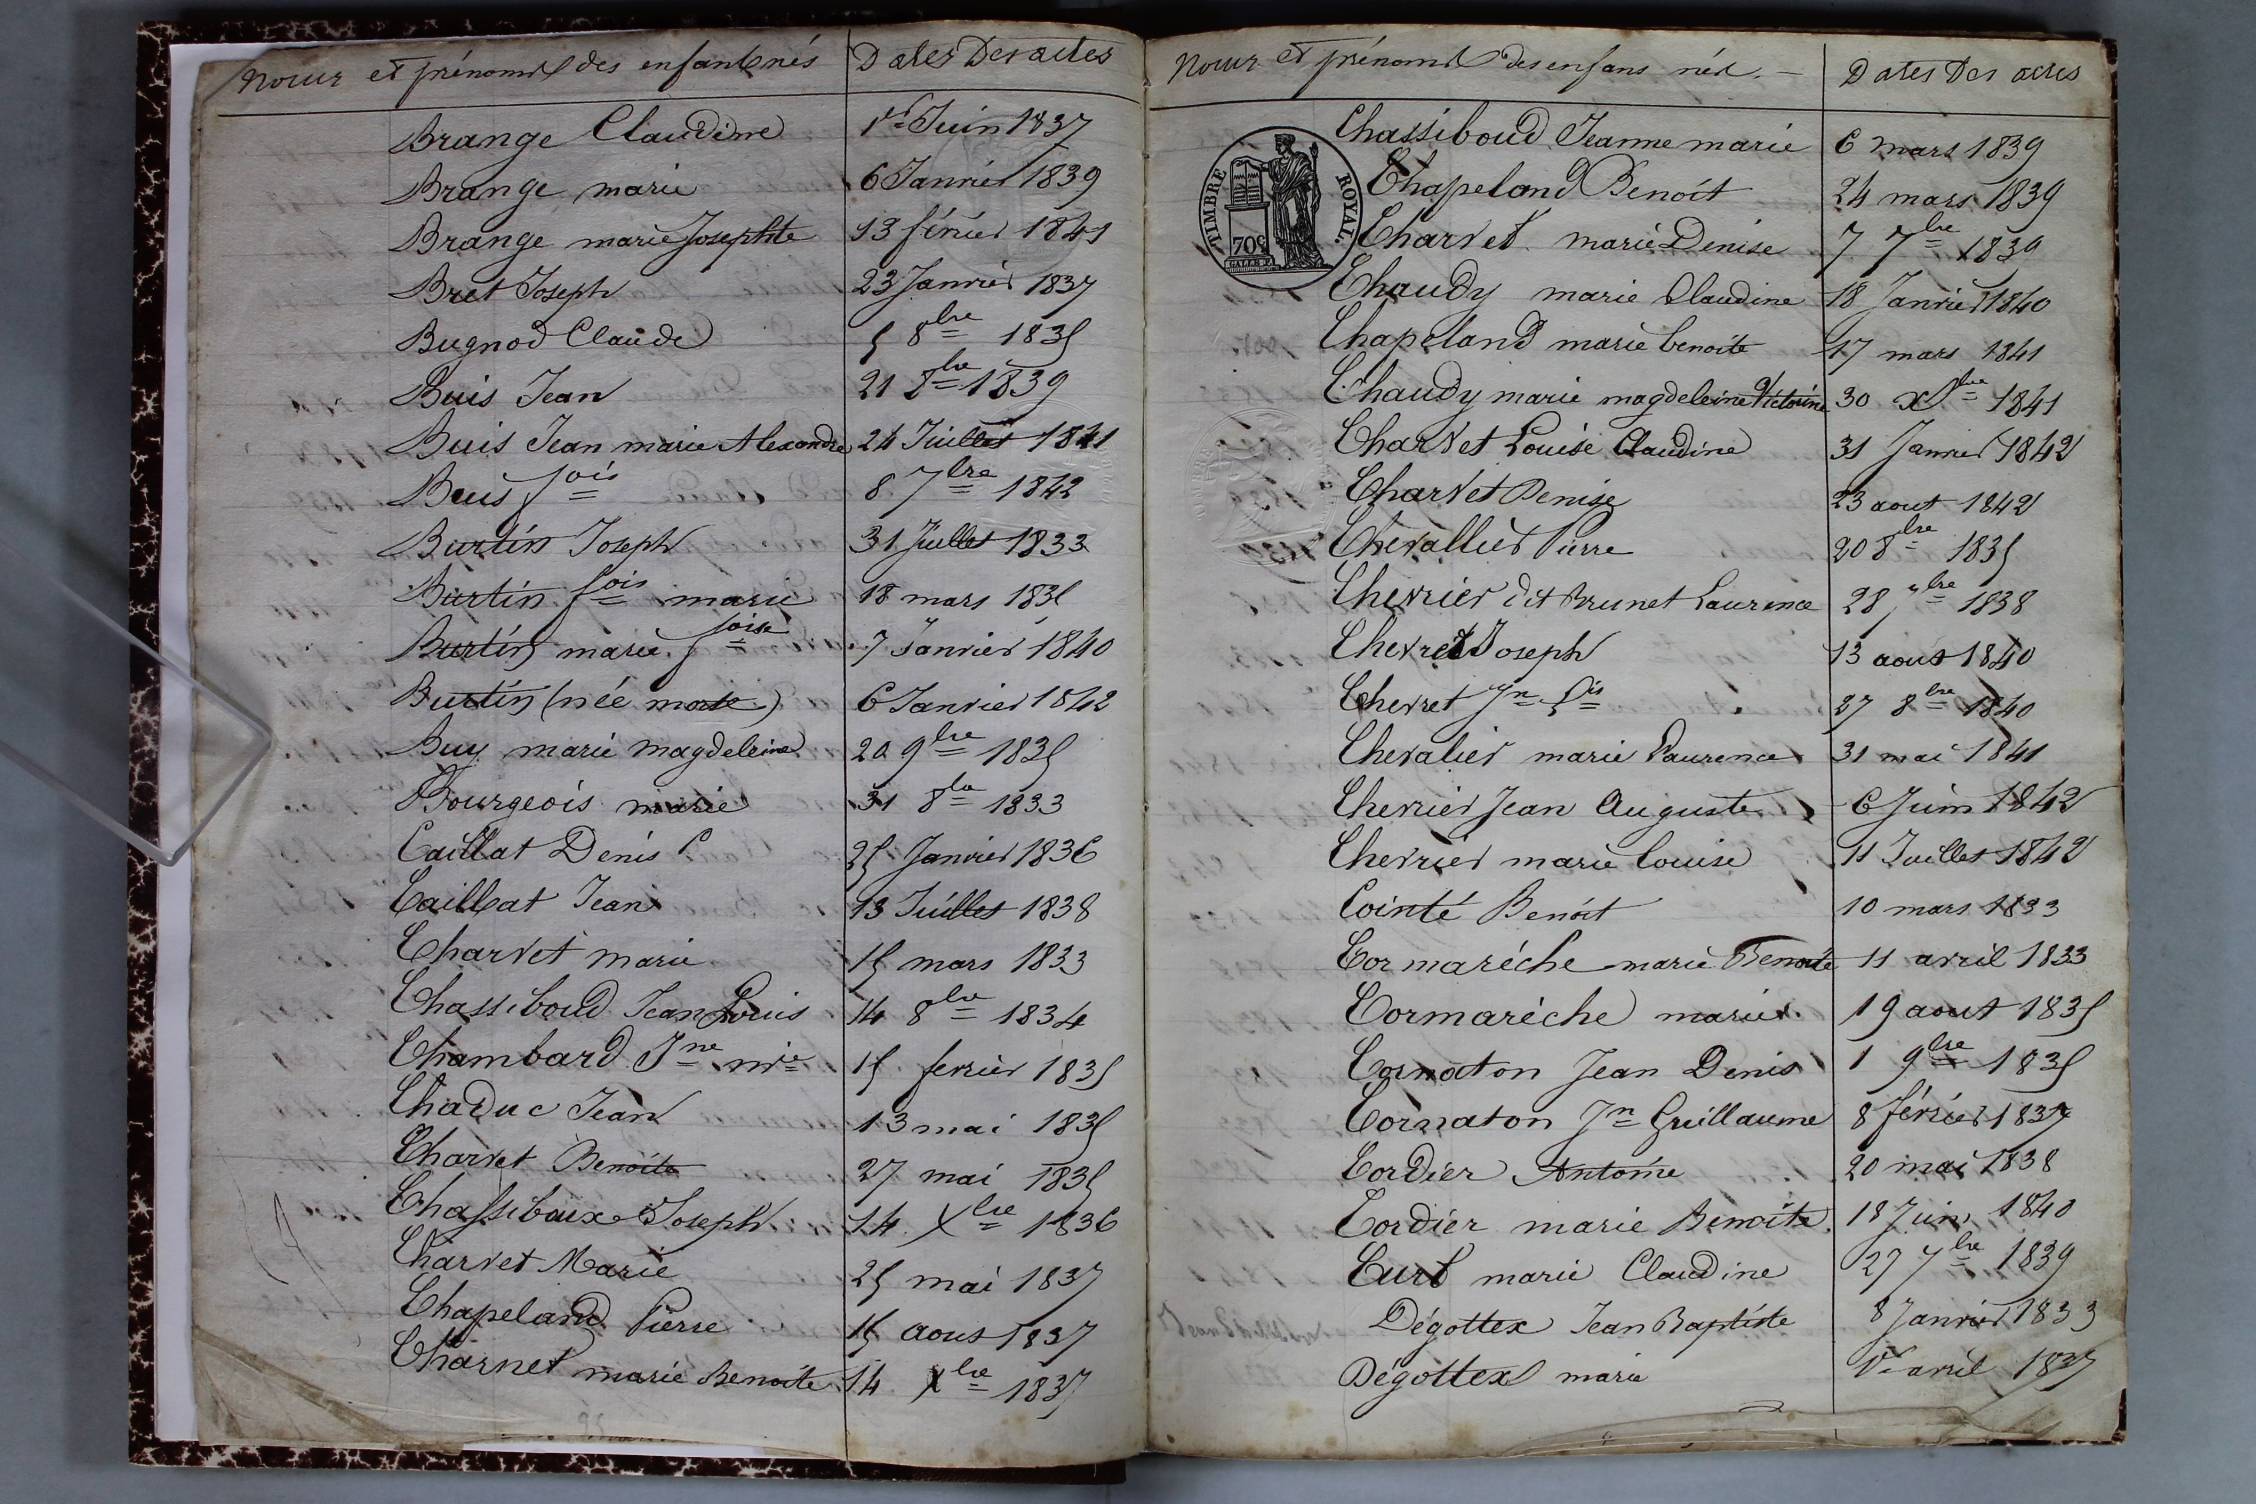 Noms et prénoms des enfants nés Dates Des actes
Brange Claudine 1er Juin 1837
Brange marie 6 Janvier 1839
Brange marie Josephte 13 février 1841
Bret Joseph 23 Janvier 1837
Bugnod Claude 5 8bre 1835
Buis Jean 21 8bre 1839
Buis Jean marie Alexandre 24 Juillet 1841
Buis fois 8 7bre 1842
Burtin Joseph 31 Juillet 1833
Burtin fois marie 18 mars 1835
Burtin marie foise 7 Janvier 1840
Burtin (née morte) 6 Janvier 1842
Buy marie magdeleine 20 9bre 1835
Bourgeois marie 31 8bre 1833
Caillat Denis 25 Janvier 1836
Caillat Jean 13 Juillet 1838
Charvet marie 15 mars 1833
Chassiboud Jean Louis 14 8bre 1834
Chambard Jne mie 15 fevrier 1835
Chaduc Jean 13 mai 1835
Charvet Benoite 27 mai 1835
Chassiboux Joseph 14 Xbre 1836
Charvet Marie 25 mai 1837
Chapeland Pierre 15 aout 1837
Charnet marie Benoite 14 Xbre 1837
Noms et prénoms des enfans nés. Dates Des actes
TIMBRE ROYAL.
70c
Chassiboud Jeanne marie 6 mars 1839
Chapeland Benoit 24 mars 1839
Charvet marie Denise 7 7bre 1839
Chaudy marie Claudine 18 Janvier 1840
Chapeland marie benoite 17 mars 1841
Chaudy marie magdeleine Victorine 30 Xbre 1841
Charvet Louise Claudine 31 Janvier 1842
Charvet Denise 23 aout 1842
Chevallier Pierre 20 8bre 1835
Chevrier dit Brunet Laurence 28 7bre 1838
Chevret Joseph 13 aout 1840
Chevret Jn fis 27 8bre 1840
Chevalier marie Laurence 31 mai 1841
Chevrier Jean Auguste 6 Juin 1842
Chevrier marie louise 11 Juillet 1842
Cointé Benoit 10 mars 1833
Cormaréche marie Benoite 11 avril 1833
Cormaréche marie 19 aout 1835
Cornaton Jean Denis 1 9bre 1835
Cornaton Jn Guillaume 8 février 1837
Cordier Antoine 20 mai 1838
Cordier marie Benoite 18 Juin 1840
Curt marie Claudine 27 7bre 1839
Dégottex Jean Baptiste 8 Janvier 1833
Dégottex marie 1er avril 1837